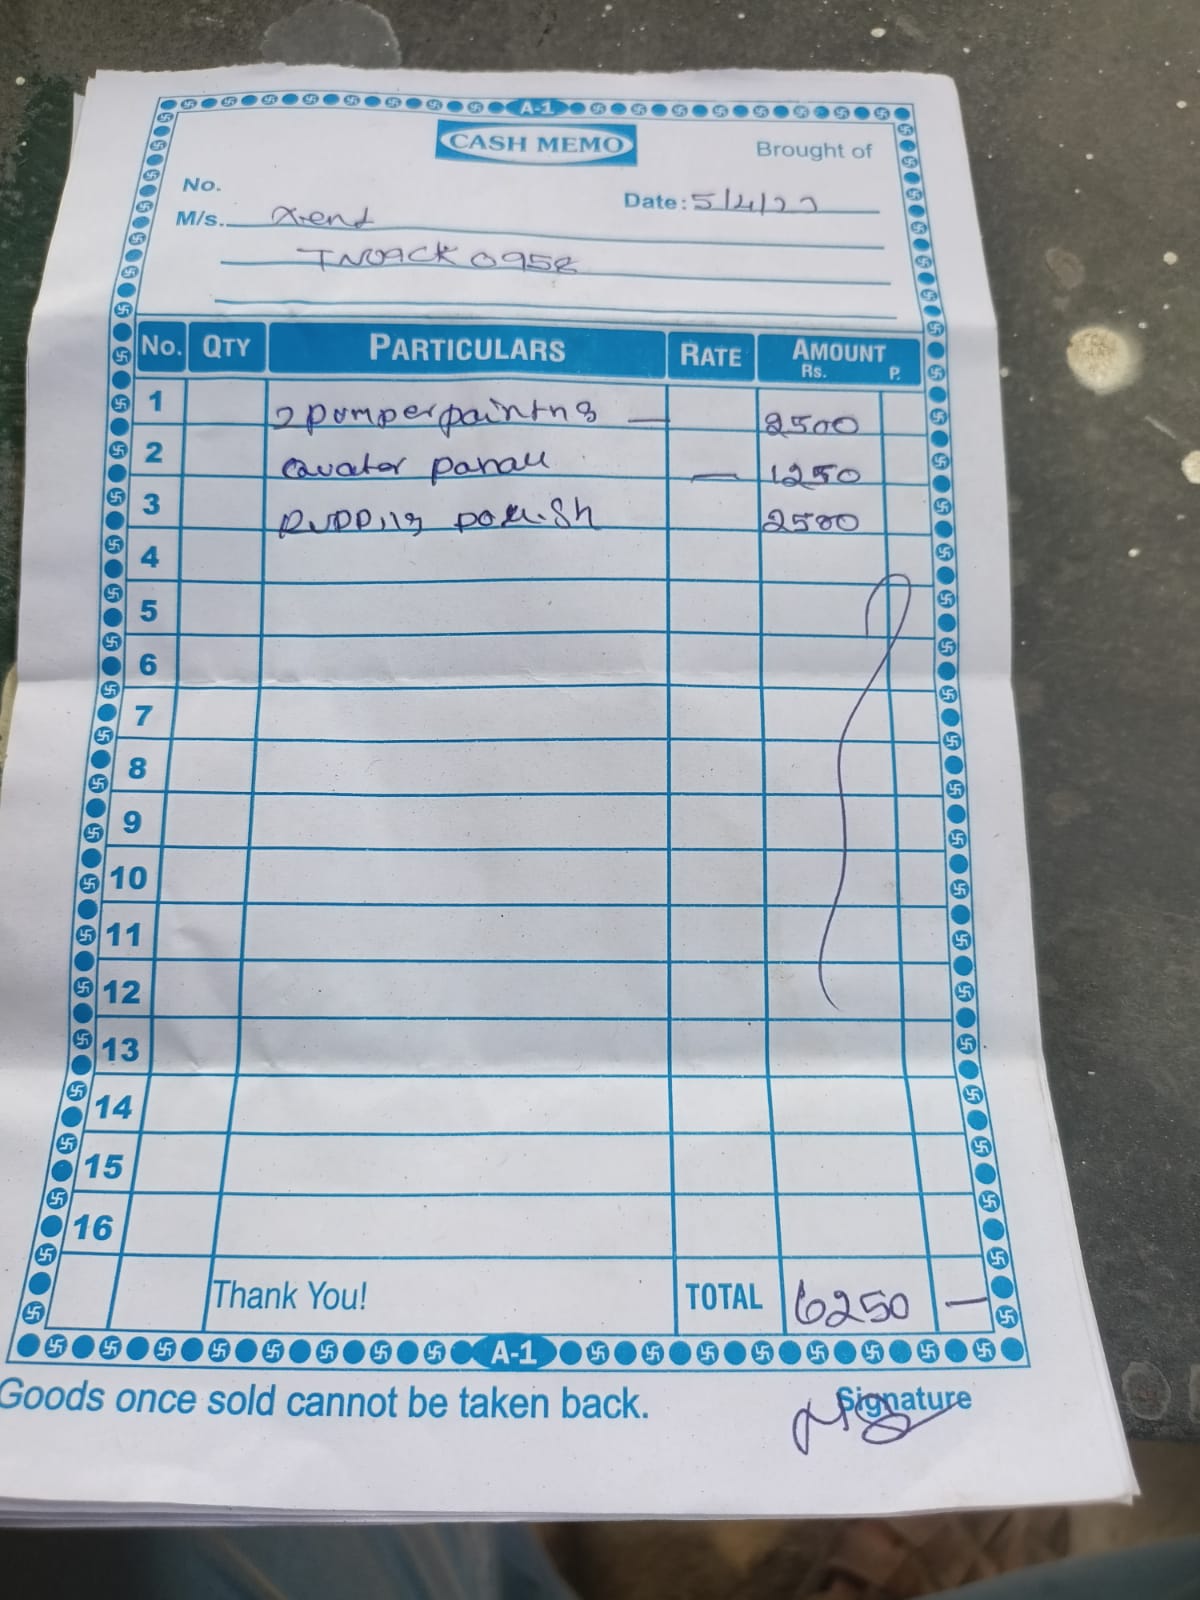 A-1
CASH MEMO
Brought of
No.
Date: 5/4/22
M/s. Xent
TN07CK0958
No. QTY PARTICULARS RATE AMOUNT
Rs. P.
1 2 pumper paintng — 2500
2 panall — 1250
3 Rubbing pollish 2500
4
5
6
7
8
9
10
11
12
13
14
15
16
Thank You! TOTAL 6250 —
A-1
Goods once sold cannot be taken back.
Signature